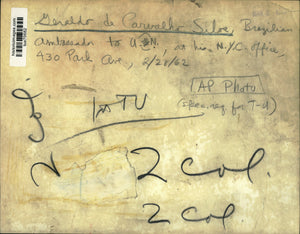 Geraldo de Carvalho Silos, Brazilian
Ambassador to U.N., in his N.Y.C. office,
430 Park Ave., 2/28/62
AP Photo
(spec. req for T-U)
TU
2 col.
2 col.